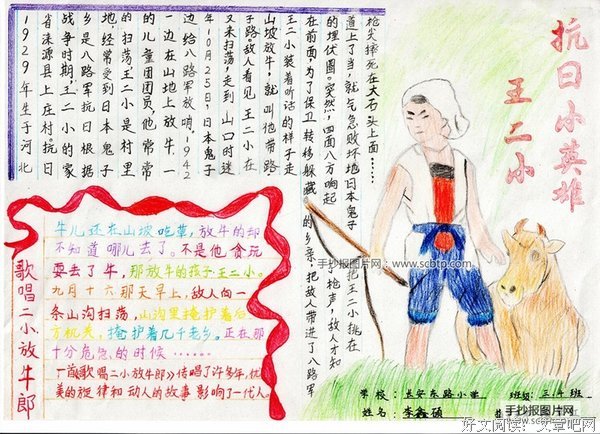 抗日小英雄
王二小
1929年生于河北
省涞源县上庄村。抗日
战争时期,王二小的家
乡是八路军抗日根据
地,经常受到日本鬼子
的扫荡,王二小是村里
的儿童团团员,他常常
一边在山地上放牛,一
边给八路军放哨。1942
年10月25日,日本鬼子
又来扫荡,走到山口时迷
了路。敌人看见王二小在
山坡放牛,就叫他带路
王二小装着听话的样子走
在前面,为了保卫转移躲藏的乡亲,把敌人带进了八路军
的埋伏圈。突然,四面八方响起 小枪声,敌人才知
道上了当,就气急败坏地日本鬼子 把王二小挑在
枪尖摔死在大石头上面……
歌唱二小放牛郎
牛儿还在山坡吃草,放牛的却
不知道哪儿去了。不是他贪玩
耍丢了牛,那放牛的孩子王二小。
九月十六那天早上,敌人向一
条山沟扫荡,山沟里掩护着后
方机关,掩护着几千老乡。正在那
十分危急的时候……
一首《歌唱二小放牛郎》传唱了许多年,优
美的旋律和动人的故事影响了一代人。
手抄报图片网:www.scbtp.com
学校:长安东路小学 班级:三年班
姓名:李鑫硕
手抄报图片网
www.scbtp.com
好文阅读:文章吧网